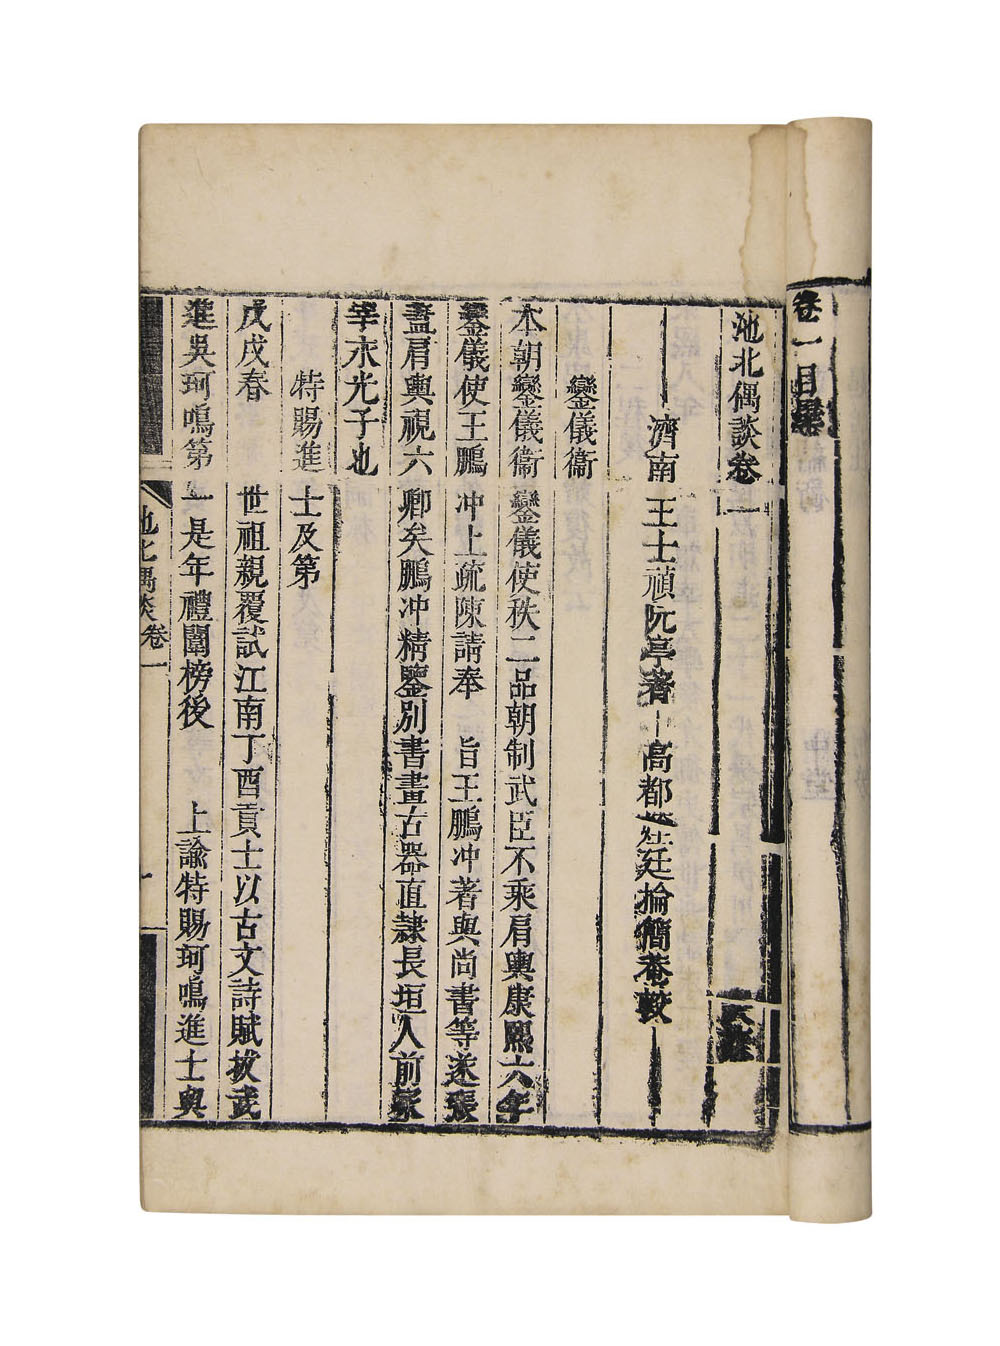 卷一目
池北偶談卷一
濟南 王士禎阮亭著 高都 廷掄簡菴較
鑾儀衞
本朝鑾儀衞鑾儀使秩二品朝制武臣不乘肩輿康熙六年
鑾儀使王鵬冲上疏陳請奉 旨王鵬冲著與尚書等遂張
蓋肩輿視六卿矣鵬冲精鑒別書畫古器直隸長垣人前冢
宰永光子也
特賜進士及第
戊戌春 世祖親覆試江南丁酉貢士以古文詩賦拔武
進吳珂鳴第一是年禮闈榜後 上諭特賜珂鳴進士與
池北偶談卷一 一